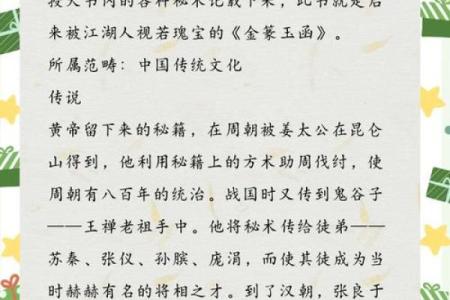 授天书内的各种秘术记载下来，此书就是后
来被江湖人视若瑰宝的《金篆玉函》。
所属范畴：中国传统文化
传说
黄帝留下来的秘籍，在周朝被姜太公在昆仑
山得到，他利用秘籍上的方术助周伐纣，使
周朝有八百年的统治。战国时又传到鬼谷子
——王禅老祖手中。他将秘术传给徒弟——
苏秦、张仪、孙膑、庞涓，而使其徒成为当
时赫赫有名的将相之才。到了汉朝，张良于